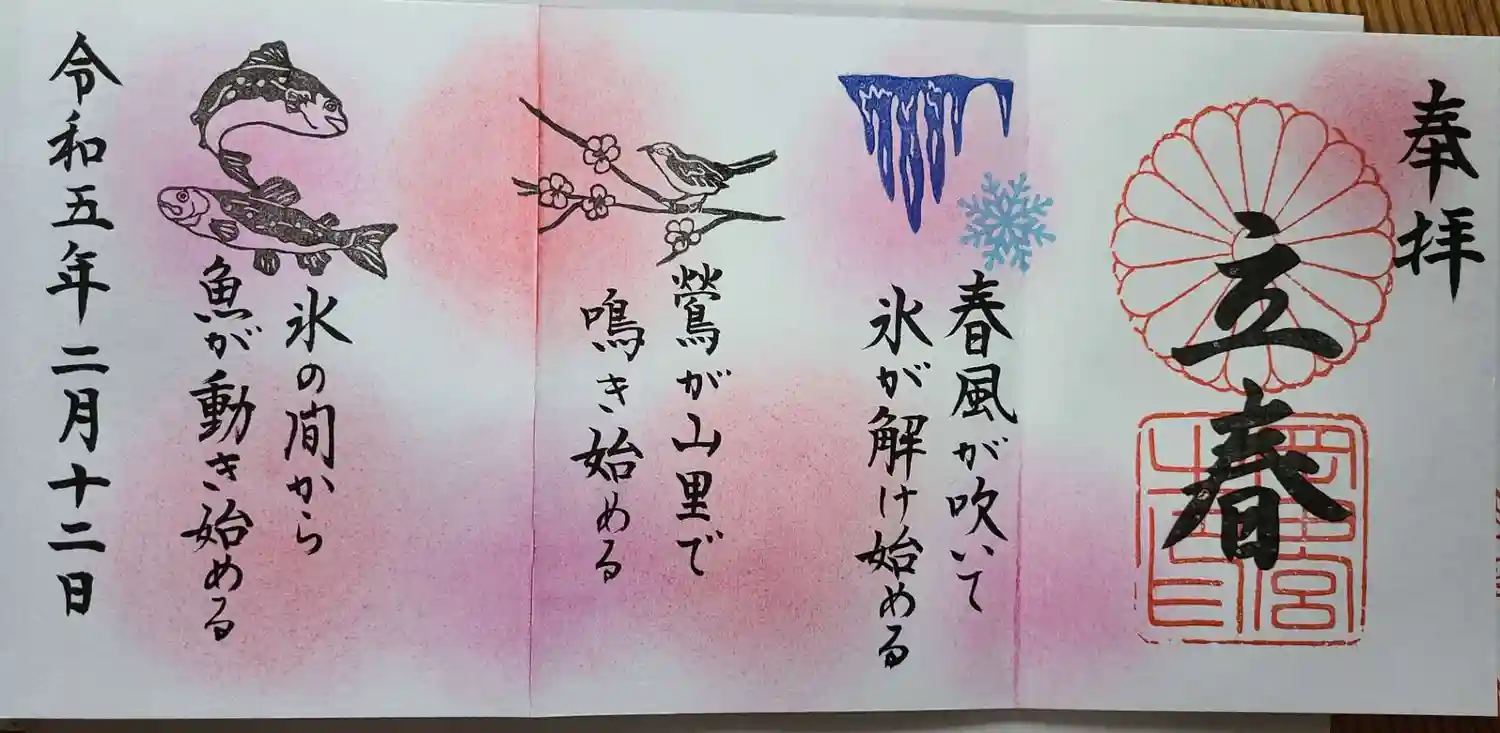 奉拝
立春
岡田宮
春風が吹いて
氷が解け始める
鶯が山里で
鳴き始める
氷の間から
魚が動き始める
令和五年二月十二日